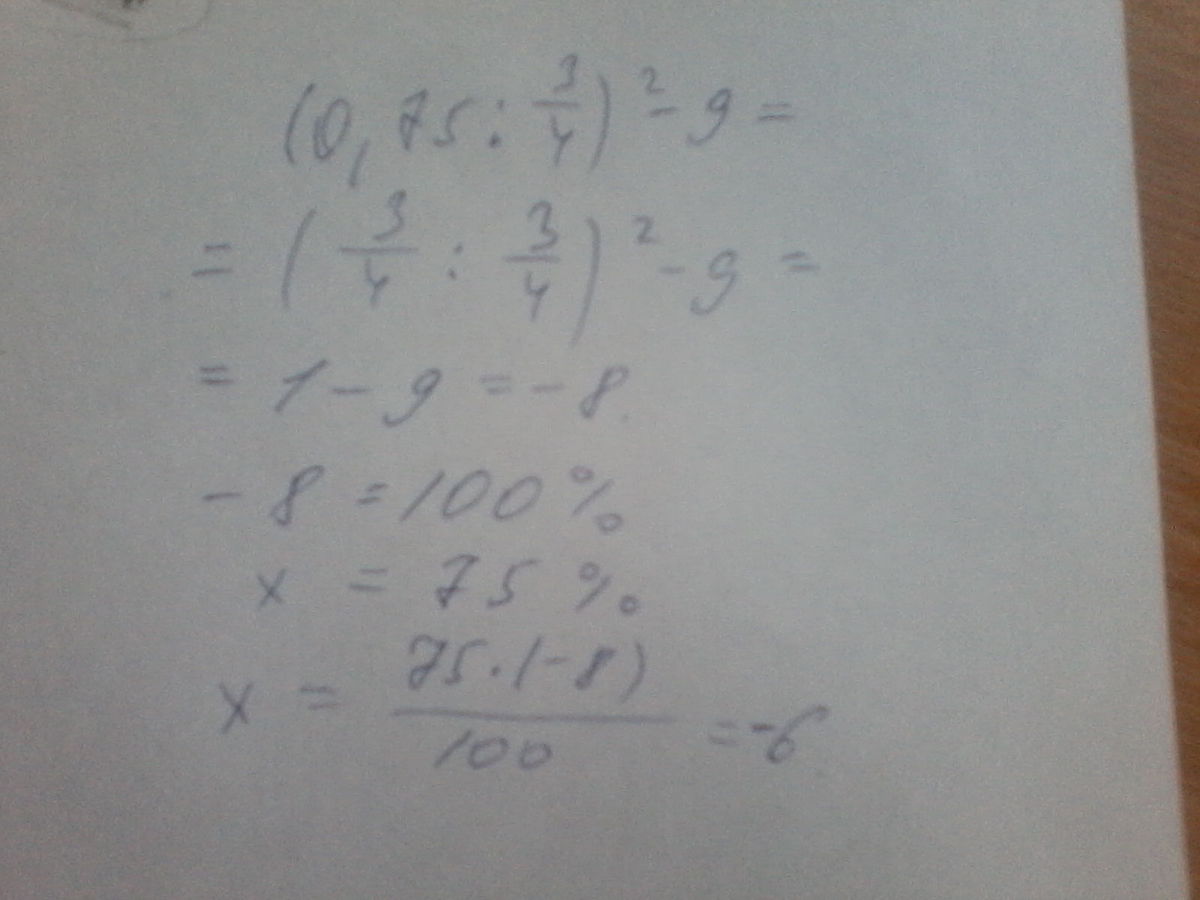 (0,75 : 3/4)² - 9 =
= (3/4 : 3/4)² - 9 =
= 1 - 9 = -8.
- 8 = 100%
x = 75%
x = 75·(-8)/100 = -6